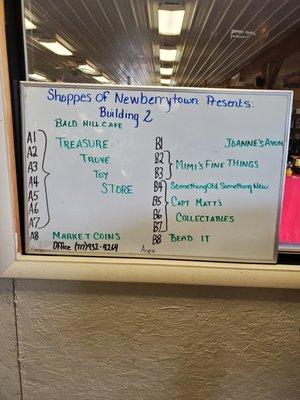 Shoppes of Newberrytown Presents:
Building 2
BALD HILL CAFE
A1
A2
A3
A4
A5
A6
A7
TREASURE
TROVE
TOY
STORE
A8 MARKET COINS
OFFice (717)932-4264
B1 JOANNE'S AVON
B2
B3
MIMI'S FINE THINGS
B4 Something Old Something New
B5
B6
B7
CAPT MATT'S
COLLECTABLES
B8 BEAD IT
Angie